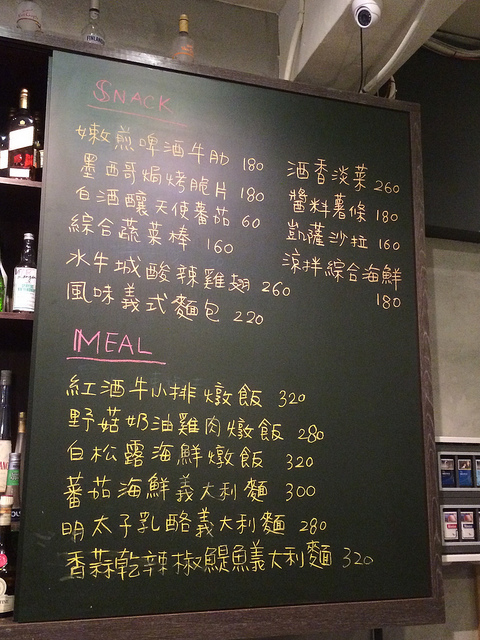 SNACK
嫩煎啤酒牛肋 180
墨西哥焗烤脆片 180
白酒釀天使蕃茄 60
綜合蔬菜棒 160
水牛城酸辣雞翅 260
風味義式麵包 220
酒香淡菜 260
醬料薯條 180
凱薩沙拉 160
涼拌綜合海鮮
180
MEAL
紅酒牛小排燉飯 320
野菇奶油雞肉燉飯 280
白松露海鮮燉飯 320
蕃茄海鮮義大利麵 300
明太子乳酪義大利麵 280
香蒜乾辣椒鯷魚義大利麵 320